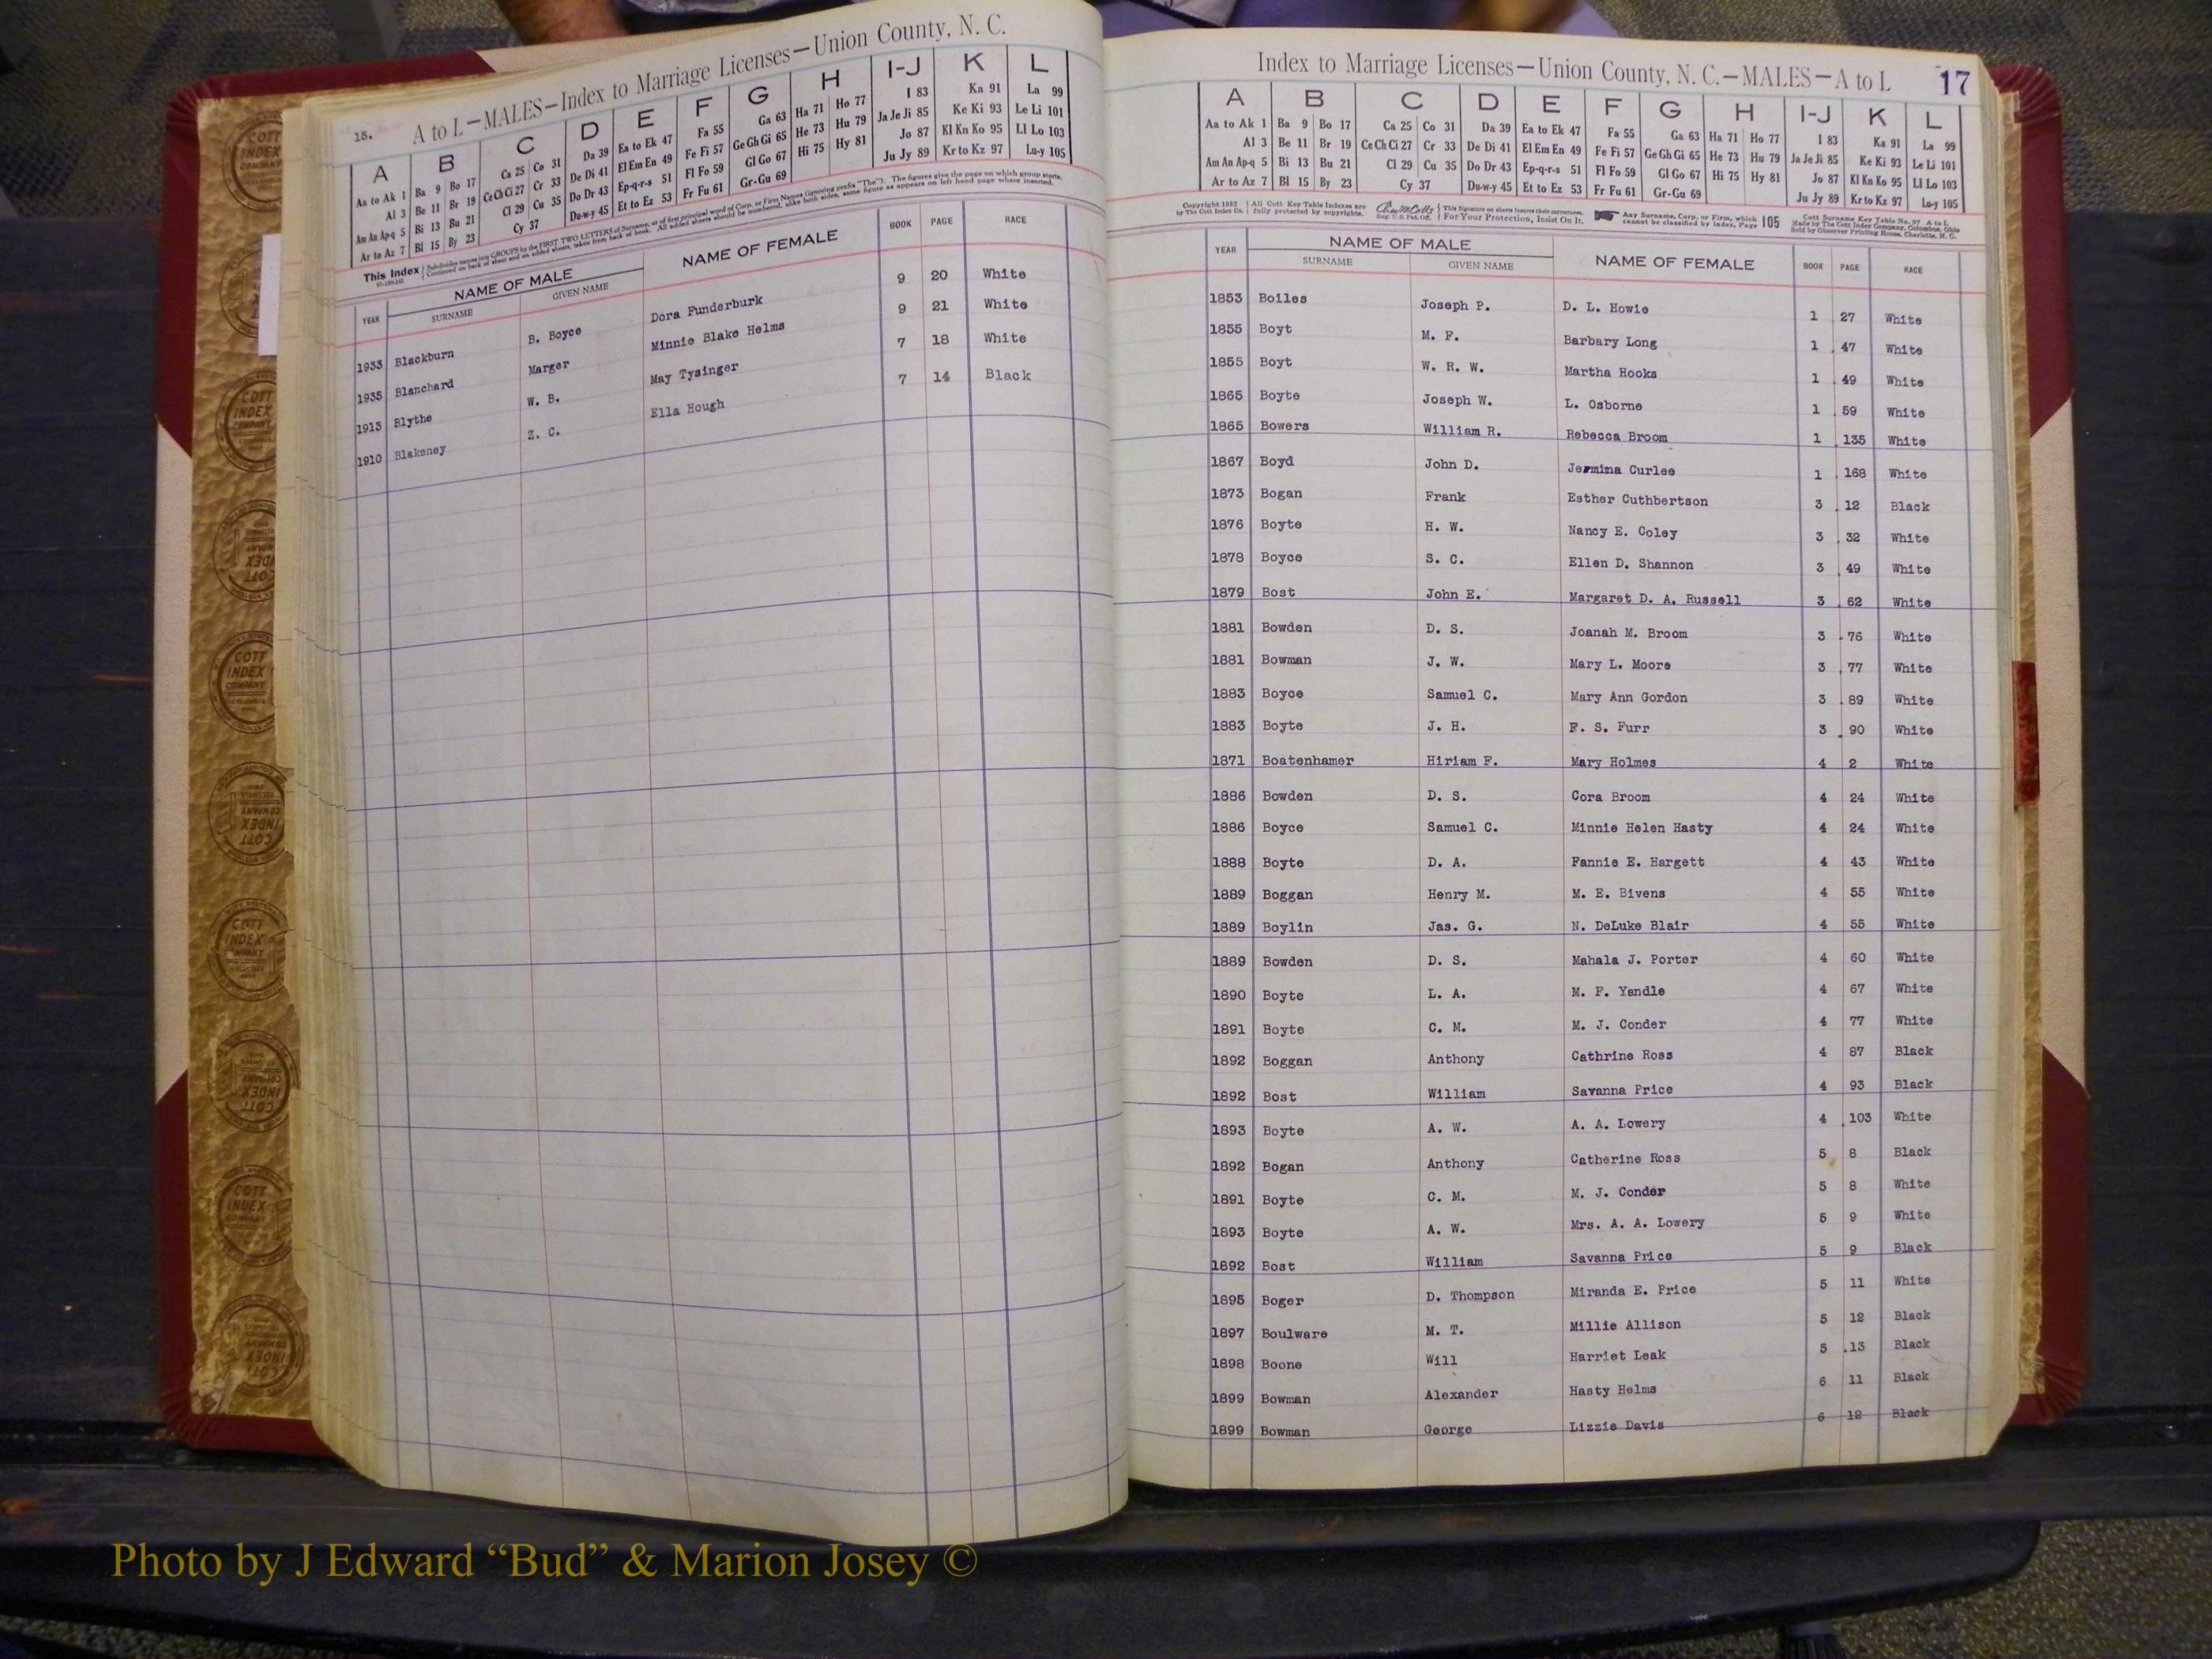 15. A to L—MALES—Index to Marriage Licenses—Union County, N. C.
A B C D E F G H I-J K L
Aa to Ak 1 Ba 9 Bo 17 Ca 25 Co 31 Da 39 Ea to Ek 47 Fa 55 Ga 63 Ha 71 Ho 77 I 83 Ka 91 La 99
Al 3 Be 11 Br 19 Ce Ch Ci 27 Cr 33 De Di 41 El Em En 49 Fe Fi 57 Ge Gh Gi 65 He 73 Hu 79 Ja Je Ji 85 Ke Ki 93 Le Li 101
Am An Ap-q 5 Bi 13 Bu 21 Cl 29 Cu 35 Do Dr 43 Ep-q-r-s 51 Fl Fo 59 Gl Go 67 Hi 75 Hy 81 Jo 87 Kl Kn Ko 95 Ll Lo 103
Ar to Az 7 Bl 15 By 23 Cy 37 Du-w-y 45 Et to Ez 53 Fr Fu 61 Gr-Gu 69 Ju Jy 89 Kr to Kz 97 Lu-y 105
This Index Subdivides names into GROUPS by the FIRST TWO LETTERS of Surname, or of first principal word of Corp. or Firm Names (ignoring prefix "The"). The figures give the page on which group starts.
Continued on back of sheet and on added sheets, taken from back of book. All added sheets should be numbered, alike both sides, same figure as appears on left hand page where inserted.
YEAR NAME OF MALE NAME OF FEMALE BOOK PAGE RACE
SURNAME GIVEN NAME
1933 Blackburn B. Boyce Dora Funderburk 9 20 White
1935 Blanchard Marger Minnie Blake Helms 9 21 White
1913 Blythe W. B. May Tysinger 7 18 White
1910 Blakeney Z. C. Ella Hough 7 14 Black
Index to Marriage Licenses—Union County, N. C.—MALES—A to L 17
A B C D E F G H I-J K L
Aa to Ak 1 Ba 9 Bo 17 Ca 25 Co 31 Da 39 Ea to Ek 47 Fa 55 Ga 63 Ha 71 Ho 77 I 83 Ka 91 La 99
Al 3 Be 11 Br 19 Ce Ch Ci 27 Cr 33 De Di 41 El Em En 49 Fe Fi 57 Ge Gh Gi 65 He 73 Hu 79 Ja Je Ji 85 Ke Ki 93 Le Li 101
Am An Ap-q 5 Bi 13 Bu 21 Cl 29 Cu 35 Do Dr 43 Ep-q-r-s 51 Fl Fo 59 Gl Go 67 Hi 75 Hy 81 Jo 87 Kl Kn Ko 95 Ll Lo 103
Ar to Az 7 Bl 15 By 23 Cy 37 Du-w-y 45 Et to Ez 53 Fr Fu 61 Gr-Gu 69 Ju Jy 89 Kr to Kz 97 Lu-y 105
Copyright 1932 All Cott Key Table Indexes are This Signature on sheets insures their correctness. Any Surname, Corp. or Firm, which 105 Cott Surname Key Table No. 97 A to L
by The Cott Index Co. fully protected by copyrights. Reg. U. S. Pat. Off. For Your Protection, Insist On It. cannot be classified by Index, Page Made by The Cott Index Company, Columbus, Ohio
Sold by Observer Printing House, Charlotte, N. C.
YEAR NAME OF MALE NAME OF FEMALE BOOK PAGE RACE
SURNAME GIVEN NAME
1853 Boiles Joseph P. D. L. Howie 1 27 White
1855 Boyt M. F. Barbary Long 1 47 White
1855 Boyt W. R. W. Martha Hooks 1 49 White
1865 Boyte Joseph W. L. Osborne 1 59 White
1865 Bowers William R. Rebecca Broom 1 135 White
1867 Boyd John D. Jermina Curlee 1 168 White
1873 Bogan Frank Esther Cuthbertson 3 12 Black
1876 Boyte H. W. Nancy E. Coley 3 32 White
1878 Boyce S. C. Ellen D. Shannon 3 49 White
1879 Bost John E. Margaret D. A. Russell 3 62 White
1881 Bowden D. S. Joanah M. Broom 3 76 White
1881 Bowman J. W. Mary L. Moore 3 77 White
1883 Boyce Samuel C. Mary Ann Gordon 3 89 White
1883 Boyte J. H. F. S. Furr 3 90 White
1871 Boatenhamer Hiriam F. Mary Holmes 4 2 White
1886 Bowden D. S. Cora Broom 4 24 White
1886 Boyce Samuel C. Minnie Helen Hasty 4 24 White
1888 Boyte D. A. Fannie E. Hargett 4 43 White
1889 Boggan Henry M. M. E. Bivens 4 55 White
1889 Boylin Jas. G. N. DeLuke Blair 4 55 White
1889 Bowden D. S. Mahala J. Porter 4 60 White
1890 Boyte L. A. M. F. Yandle 4 67 White
1891 Boyte C. M. M. J. Conder 4 77 White
1892 Boggan Anthony Cathrine Ross 4 87 Black
1892 Bost William Savanna Price 4 93 Black
1893 Boyte A. W. A. A. Lowery 4 103 White
1892 Bogan Anthony Catherine Ross 5 8 Black
1891 Boyte C. M. M. J. Conder 5 8 White
1893 Boyte A. W. Mrs. A. A. Lowery 5 9 White
1892 Bost William Savanna Price 5 9 Black
1895 Boger D. Thompson Miranda E. Price 5 11 White
1897 Boulware M. T. Millie Allison 5 12 Black
1898 Boone Will Harriet Leak 5 13 Black
1899 Bowman Alexander Hasty Helms 6 11 Black
1899 Bowman George Lizzie Davis 6 12 Black
COTT INDEX COMPANY
Photo by J Edward “Bud” & Marion Josey ©